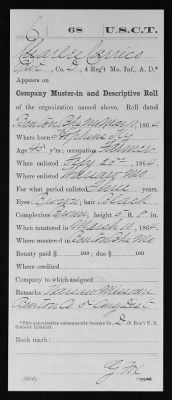 C 68 U.S.C.T.
Charles Corrico
Pvt., Co. D, 4 Reg't Mo. Inf., A. D.*
Appears on
Company Muster-in and Descriptive Roll
of the organization named above. Roll dated
Benton Bks Mo Mar 11, 1864.
Where born Ky
Age y'rs; occupation Farmer
When enlisted Feby 23d, 1864.
Where enlisted Warsaw Mo
For what period enlisted three years.
Eyes Brown; hair Black
Complexion ; height 5 ft. 8 in.
When mustered in March 11, 1864.
Where mustered in Benton Bks Mo
Bounty paid $ 100; due $ 100
Where credited
Company to which assigned
Remarks: Warsaw Missouri
Benton Co 5" Cong Dist
*This organization subsequently became Co. D, 68 Reg't U. S. Colored Infantry.
Book mark:
Copyist.